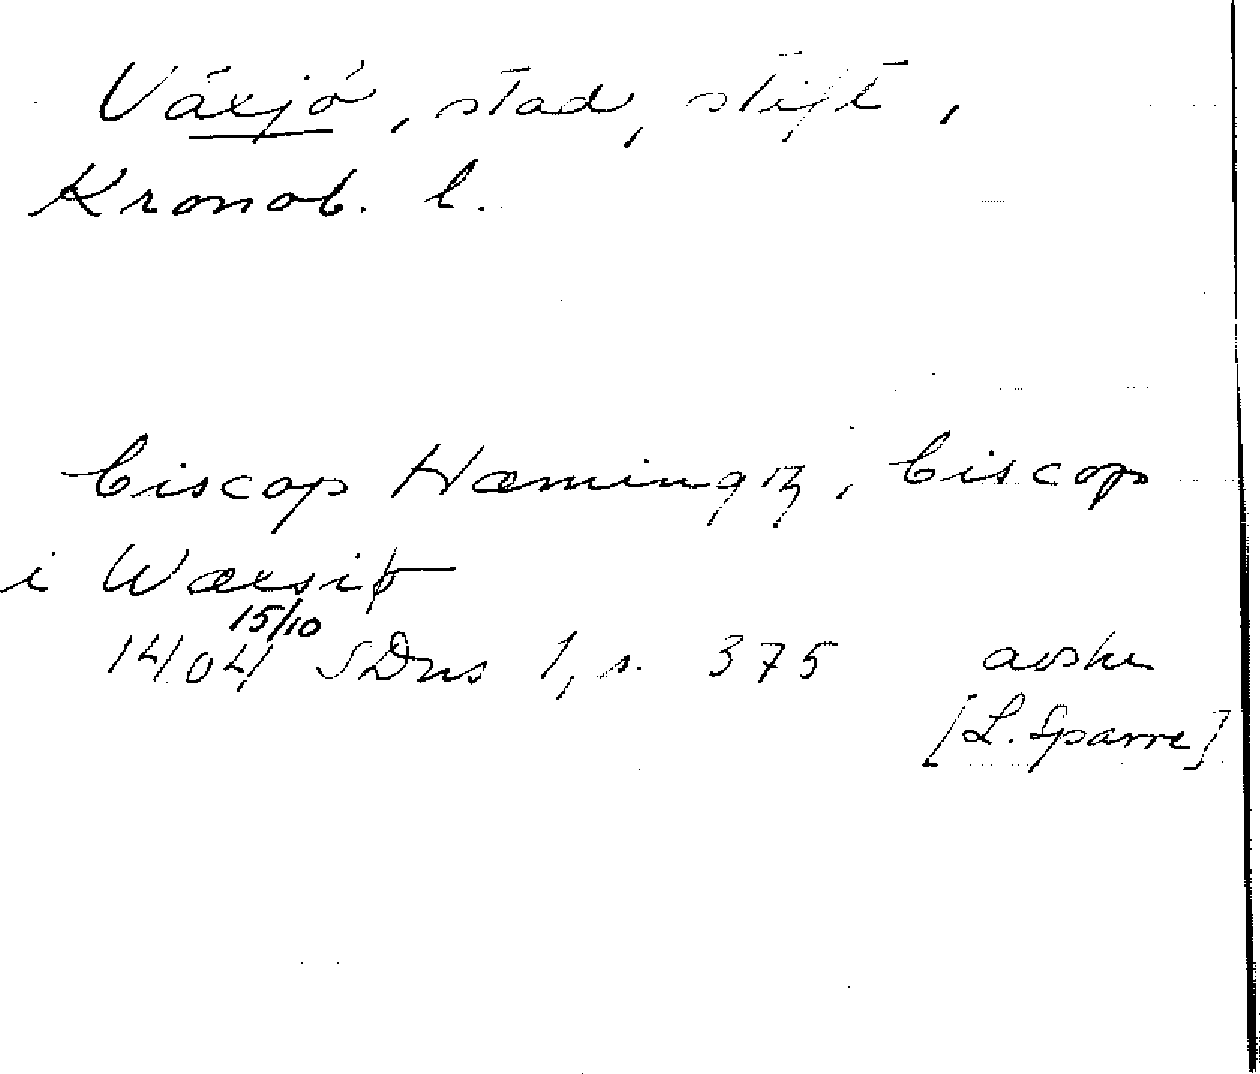 Växjö, stad, stift,
Kronob. l.
biscop Hæmingz, biscop
i Wæxsiø
15/10
1404 SDns 1, s. 375 avskr
[L. Sparre]